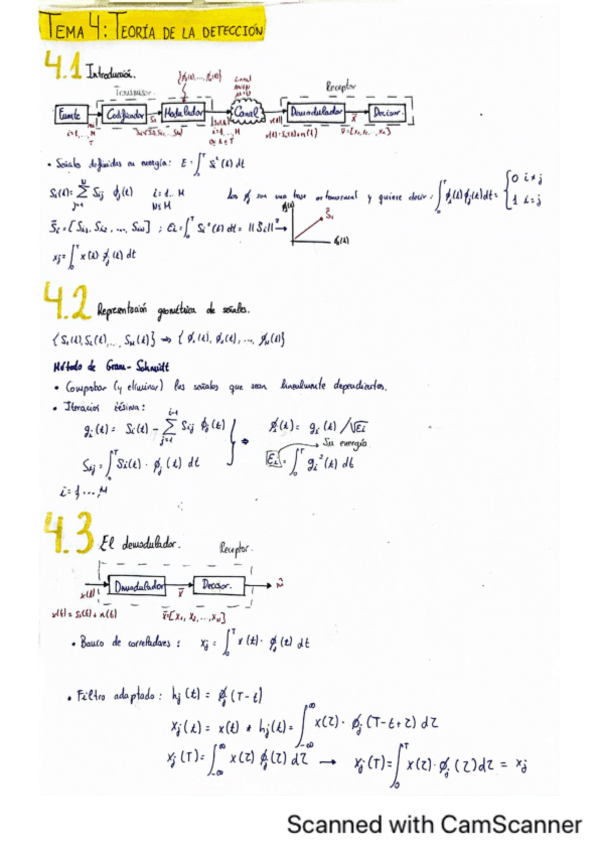 TEMA 4: TEORÍA DE LA DETECCIÓN
4.1 Introducción.
Transmisor. {ϕ₁(t),...,ϕN(t)} Canal Receptor
Fuente Codificador Modulador Canal Demodulador Decisor
i=1,...,M x(t)=Si(t)+n(t) x̄=[x₁,...,xN]
• Señales definidas en energía: E = ∫₀ᵀ Si²(t) dt
Si(t) = Σ Sij ϕj(t) i=1..M N≤M Los ϕ son una base ortonormal y quiere decir: ∫₀ᵀ ϕi(t) ϕj(t) dt = { 0 i≠j 1 i=j
S̄i = [Si1, Si2, ..., SiN] ; Ei = ∫₀ᵀ Si²(t) dt = ||S̄i||² →
xj = ∫₀ᵀ x(t) ϕj(t) dt
4.2 Representación geométrica de señales.
{S₁(t), S₂(t), ..., SM(t)} ⇒ {ϕ₁(t), ϕ₂(t), ..., ϕN(t)}
Método de Gram-Schmidt
• Comprobar (y eliminar) las señales que sean linealmente dependientes.
• Iteración iésima:
gi(t) = Si(t) - Σ Sij ϕj(t) ⇒ ϕi(t) = gi(t)/√Ei
Su energía
Sij = ∫₀ᵀ Si(t) · ϕj(t) dt Ei = ∫₀ᵀ gi²(t) dt
i=1...,M
4.3 El demodulador. Receptor.
Demodulador Decisor.
x(t) x̄ m̂
x(t) = Si(t) + n(t) x̄=[x₁, x₂, ..., xN]
• Banco de correladores: xj = ∫₀ᵀ x(t) · ϕj(t) dt
• Filtro adaptado: hj(t) = ϕj(T-t)
xj(t) = x(t) * hj(t) = ∫ x(τ) · ϕj(T-t+τ) dτ
xj(T) = ∫ x(τ) ϕj(τ) dτ → xj(T) = ∫₀ᵀ x(τ) · ϕj(τ) dτ = xj
Scanned with CamScanner